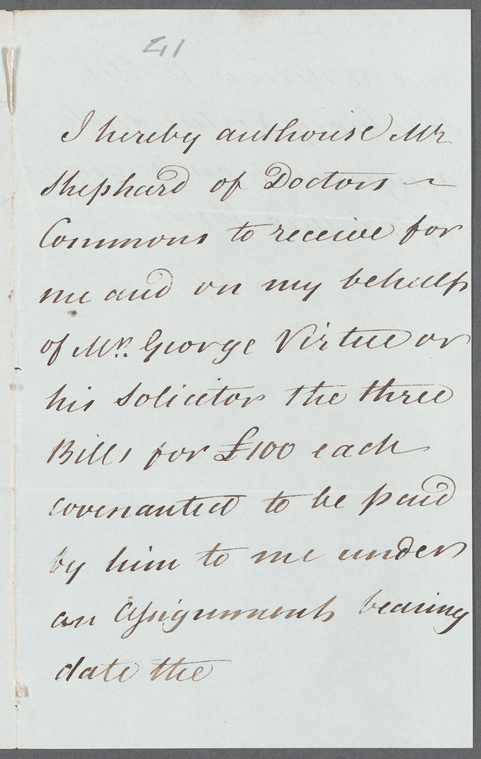 41
I hereby authorise Mr
Shephard of Doctors ~
Commons to receive for
me and on my behalf
of Mr. George Virtue or
his Solicitor the three
Bills for £100 each
covenanted to be paid
by him to me under
an Assignment bearing
date the